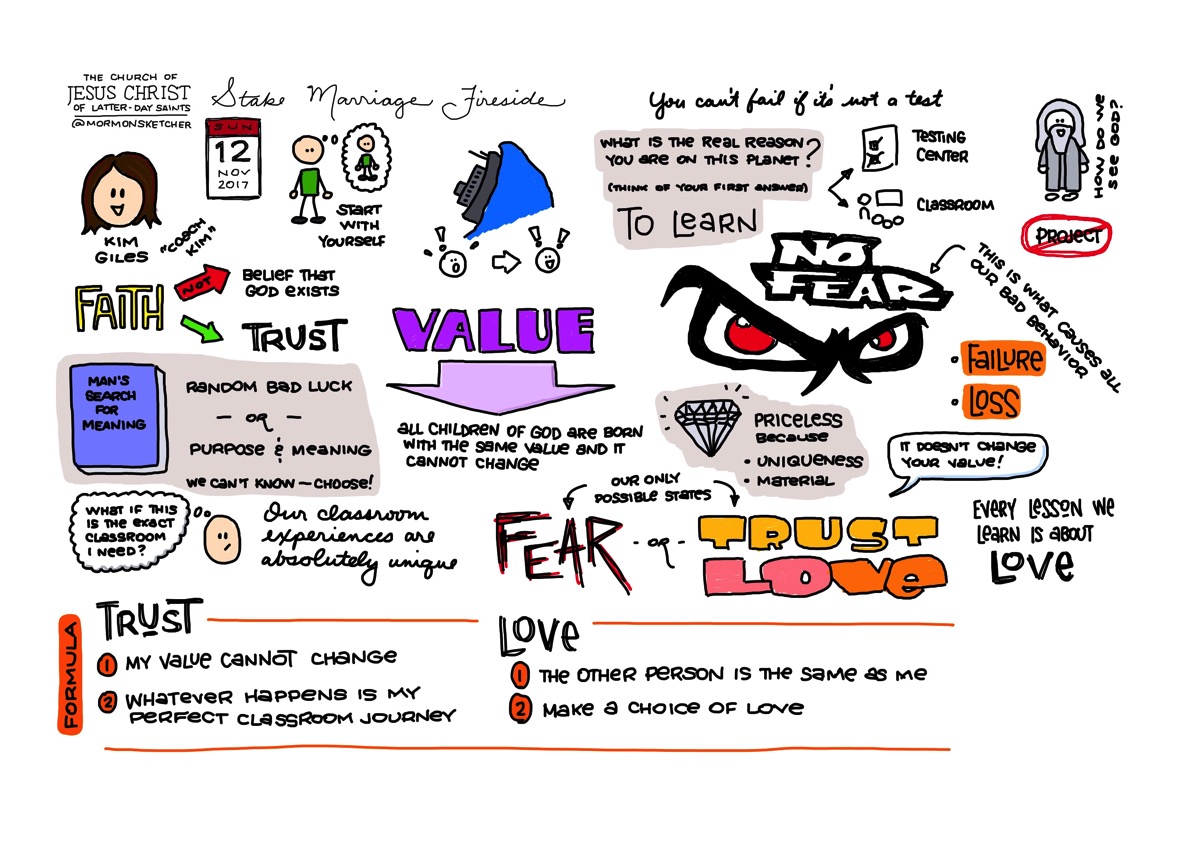 THE CHURCH OF
JESUS CHRIST
OF LATTER-DAY SAINTS
@MORMONSKETCHER
Stake Marriage Fireside
SUN
12
NOV
2017
KIM
GILES
"COACH
KIM"
START
WITH
YOURSELF
FAITH
NOT
BELIEF THAT
GOD EXISTS
TRUST
MAN'S
SEARCH
FOR
MEANING
RANDOM BAD LUCK
— OR —
PURPOSE & MEANING
WE CAN'T KNOW — CHOOSE!
WHAT IF THIS
IS THE EXACT
CLASSROOM
I NEED?
Our classroom
experiences are
absolutely unique
! !
! !
VALUE
ALL CHILDREN OF GOD ARE BORN
WITH THE SAME VALUE AND IT
CANNOT CHANGE
You can't fail if it's not a test
WHAT IS THE REAL REASON
YOU ARE ON THIS PLANET?
(THINK OF YOUR FIRST ANSWER)
TO LEARN
TESTING
CENTER
CLASSROOM
HOW DO WE
SEE GOD?
PROJECT
NO
FEAR
THIS IS WHAT CAUSES ALL
OUR BAD BEHAVIOR
• FAILURE
• LOSS
PRICELESS
BECAUSE
• UNIQUENESS
• MATERIAL
IT DOESN'T CHANGE
YOUR VALUE!
OUR ONLY
POSSIBLE STATES
FEAR
- OR -
TRUST
LOVE
EVERY LESSON WE
LEARN IS ABOUT
LOVE
FORMULA
TRUST
1 MY VALUE CANNOT CHANGE
2 WHATEVER HAPPENS IS MY
PERFECT CLASSROOM JOURNEY
LOVE
1 THE OTHER PERSON IS THE SAME AS ME
2 MAKE A CHOICE OF LOVE